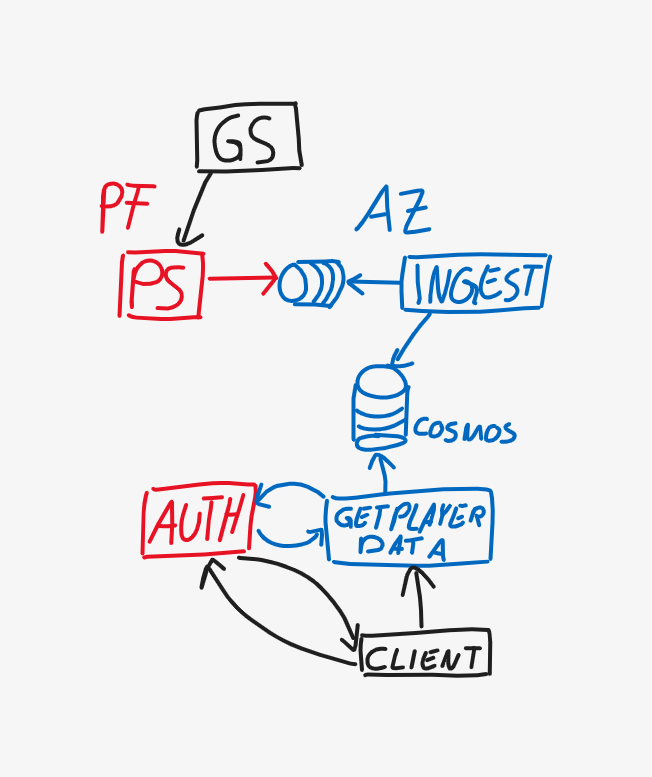 GS
PF
AZ
PS
INGEST
COSMOS
AUTH
GETPLAYER
DATA
CLIENT